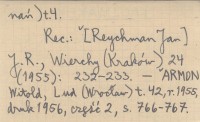 nań) t.4.
Rec.: "[Reychman Jan]
J.R., Wierchy (Kraków), 24
(1955): 232-233. — ARMON
Witold, Lud (Wrocław) t. 42, r. 1955,
druk 1956, część 2, s. 766-767.